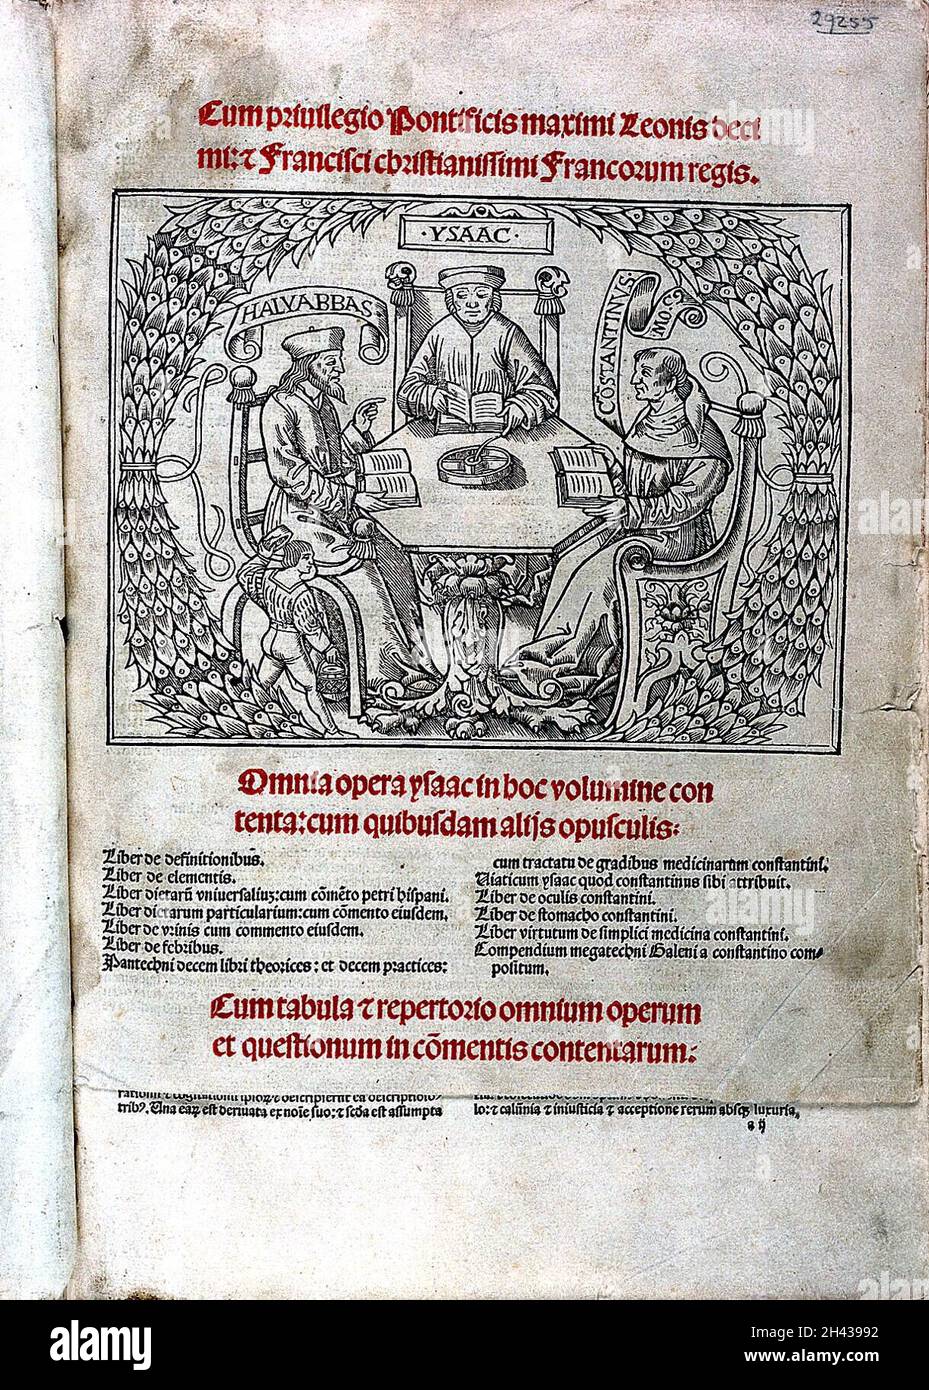 29255
Cum priuilegio Pontificis maximi Leonis deci
mi: ⁊ Francisci christianissimi Francorum regis.
·YSAAC·
HALYABBAS
CŌSTANTINVS
MOC9
Omnia opera ysaac in hoc volumine con
tenta: cum quibusdam alijs opusculis:
Liber de definitionibus.
Liber de elementis.
Liber dietarū vniuersaliuȝ: cum cōmēto petri hispani.
Liber dietarum particularium: cum cōmento eiusdem.
Liber de vrinis cum commento eiusdem.
Liber de febribus.
Pantechni decem libri theorices: et decem practices:
cum tractatu de gradibus medicinarum constantini.
Uiaticum ysaac quod constantinus sibi attribuit.
Liber de oculis constantini.
Liber de stomacho constantini.
Liber virtutum de simplici medicina constantini.
Compendium megatechni Galeni a constantino com-
positum.
Cum tabula ⁊ repertorio omnium operum
et questionum in cōmentis contentarum:
trib⁹. Una eaꝝ est deriuata ex noīe suo: ⁊ scďa est assumpta
lo: ⁊ calūnia ⁊ iniusticia ⁊ acceptione rerum absqꝫ luxuria,
a ij
alamy
Image ID: 2H43992
www.alamy.com